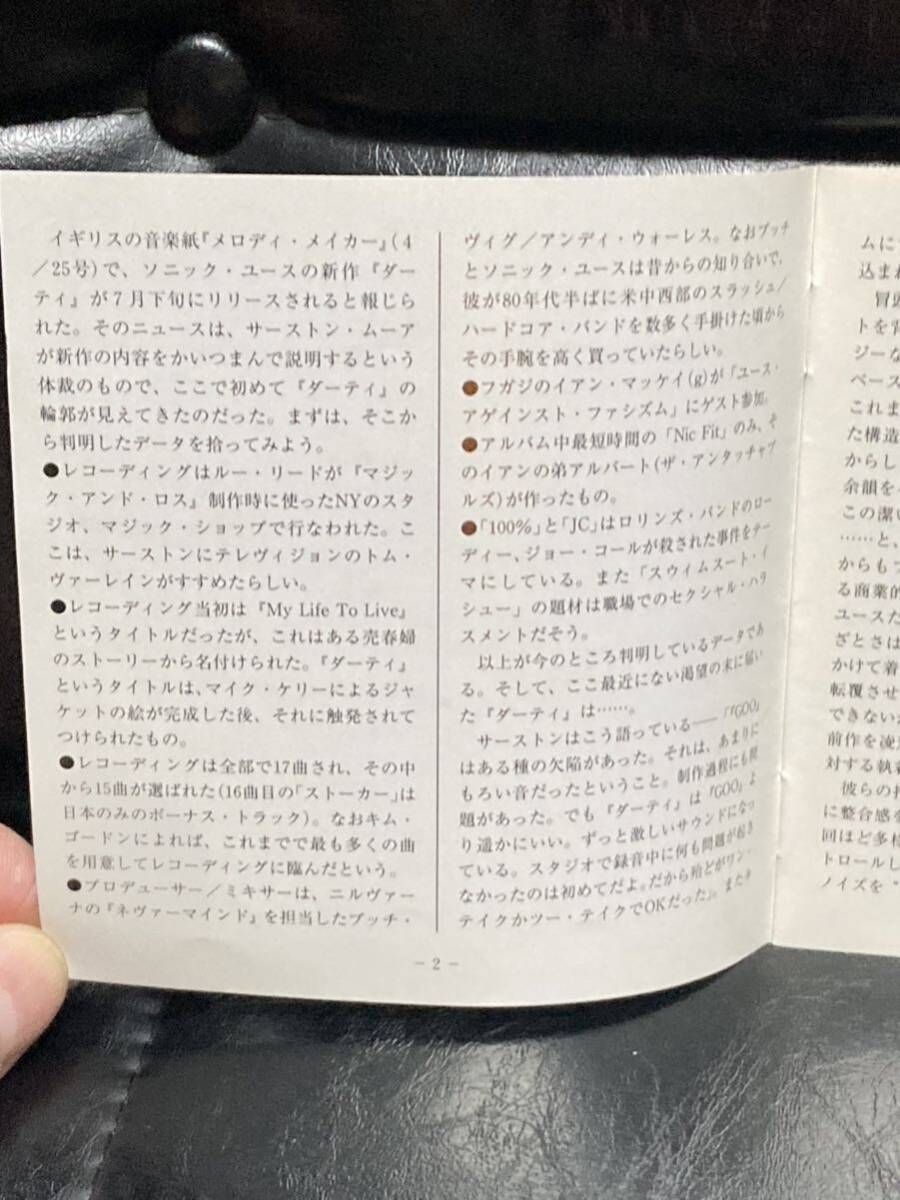 イギリスの音楽紙『メロディ・メイカー』(4
／25号)で、ソニック・ユースの新作『ダー
ティ』が7月下旬にリリースされると報じら
れた。そのニュースは、サーストン・ムーア
が新作の内容をかいつまんで説明するという
体裁のもので、ここで初めて『ダーティ』の
輪郭が見えてきたのだった。まずは、そこか
ら判明したデータを拾ってみよう。
●レコーディングはルー・リードが『マジッ
ク・アンド・ロス』制作時に使ったNYのスタ
ジオ、マジック・ショップで行なわれた。こ
こは、サーストンにテレヴィジョンのトム・
ヴァーレインがすすめたらしい。
●レコーディング当初は『My Life To Live』
というタイトルだったが、これはある売春婦
のストーリーから名付けられた。『ダーティ』
というタイトルは、マイク・ケリーによるジャ
ケットの絵が完成した後、それに触発されて
つけられたもの。
●レコーディングは全部で17曲され、その中
から15曲が選ばれた(16曲目の「ストーカー」は
日本のみのボーナス・トラック)。なおキム・
ゴードンによれば、これまでで最も多くの曲
を用意してレコーディングに臨んだという。
●プロデューサー／ミキサーは、ニルヴァー
ナの『ネヴァーマインド』を担当したブッチ・
ヴィグ／アンディ・ウォーレス。なおブッチ
とソニック・ユースは昔からの知り合いで、
彼が80年代半ばに米中西部のスラッシュ／
ハードコア・バンドを数多く手掛けた頃から
その手腕を高く買っていたらしい。
●フガジのイアン・マッケイ(g)が「ユース・
アゲインスト・ファシズム」にゲスト参加。
●アルバム中最短時間の「Nic Fit」のみ、そ
のイアンの弟アルバート(ザ・アンタッチャブ
ルズ)が作ったもの。
●「100%」と「JC」はロリンズ・バンドのロー
ディー、ジョー・コールが殺された事件をテー
マにしている。また「スウイムスート・イ
シュー」の題材は職場でのセクシャル・ハラ
スメントだそう。
以上が今のところ判明しているデータであ
る。そして、ここ最近にない渇望の末に届い
た『ダーティ』は……。
サーストンはこう語っている──「『GOO』
はある種の欠陥があった。それは、あまりに
もろい音だったということ。制作過程にも問
題があった。でも『ダーティ』は『GOO』よ
り遥かにいい。ずっと激しいサウンドになっ
ている。スタジオで録音中に何も問題が起き
なかったのは初めてだよ。だから殆どがワン・
テイクかツー・テイクでOKだった」。またキ
－2－
ムにつ
込まれ
冒頭
トを背
ジーな
ベース
これま
た構造
からし
余韻を
この潔い
……と、
からもフ
る商業的
ユースだ
ざとさは
かけて着
転覆させ
できないか
前作を凌
対する執着
彼らの持
に整合感を
回ほど多様
トロールし
ノイズを“